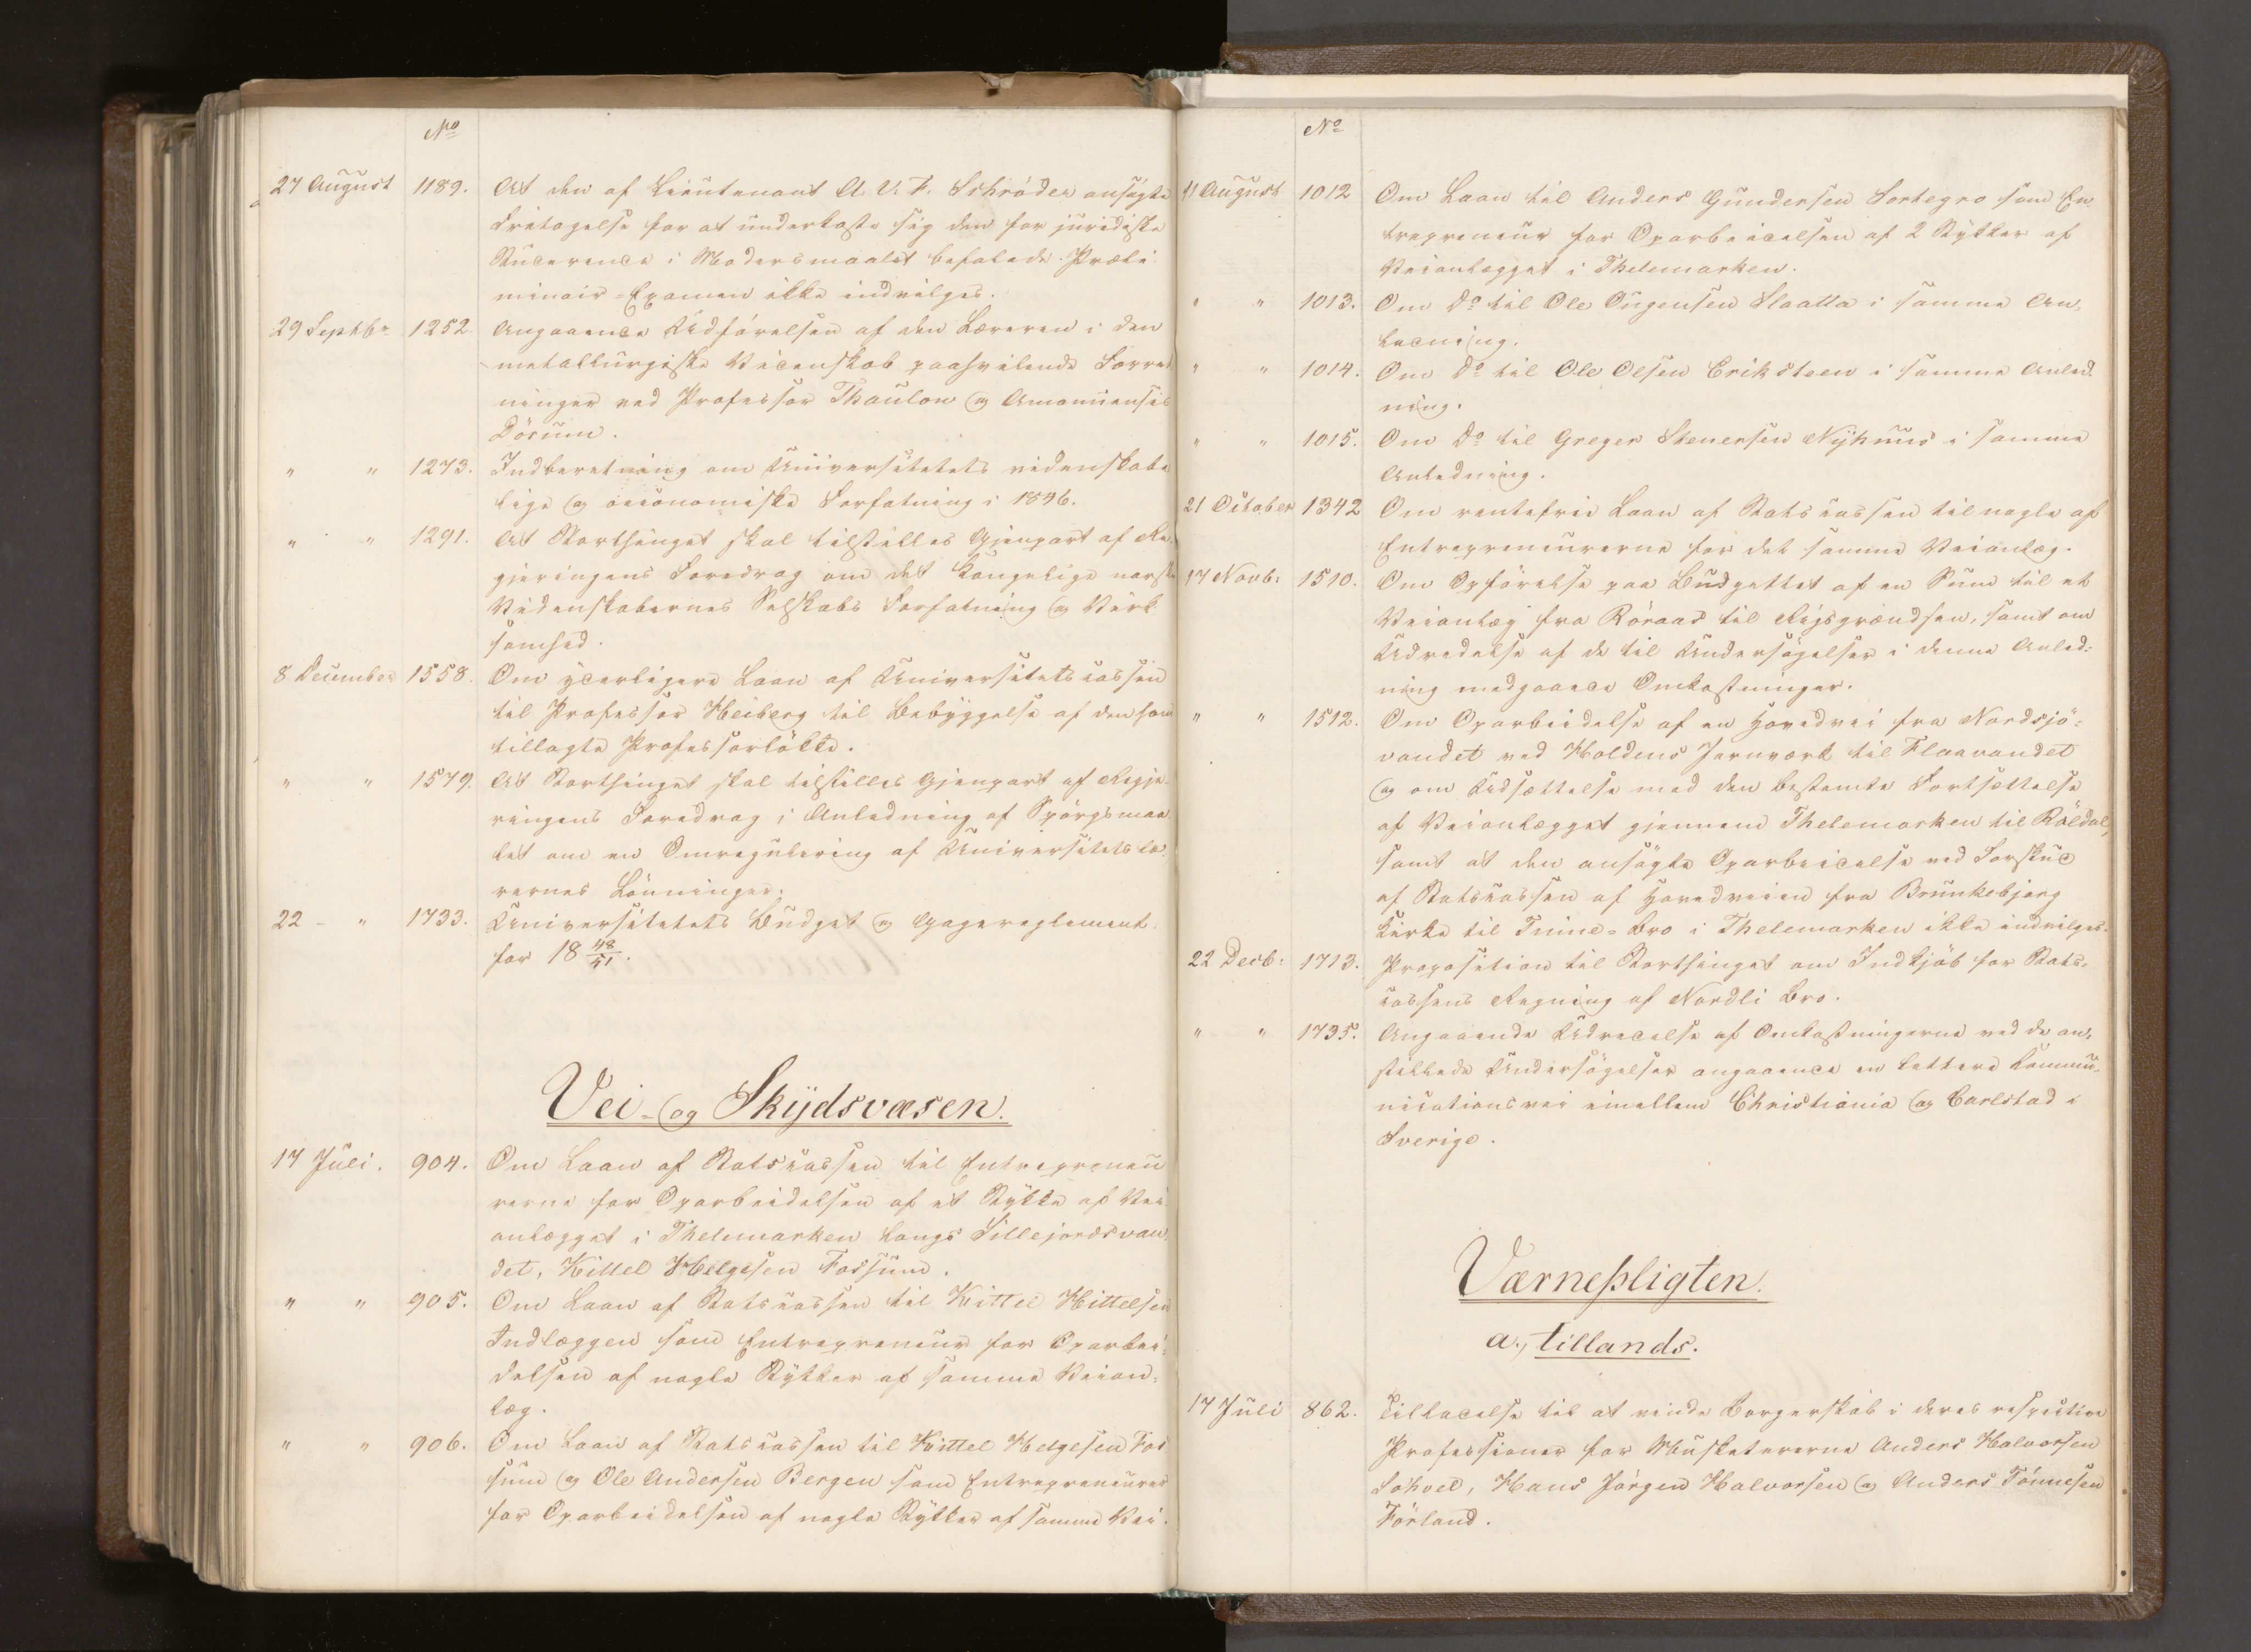 No
27 August 1189. At den af Lieutenant A. V. F. Schröder ansögte
Fritagelse for at underkaste sig den for juridiske
Studerende i Modersmaalet befalede Præli-
minair-Examen ikke indvilges.
29 Septbr 1252. Angaaende Udförelsen af den Læreren i den
metallurgiske Videnskab paahvilende Forret
ninger ved Professor Thaulow og Amanuensis
Dösum.
" " 1273. Indberetning om Universitetets videnskabe
lige og oeconomiske Forfatning i 1846.
" " 1291. At Storthinget skal tilstilles Gjenpart af Re
gjeringens Foredrag om det Kongelige norske
Videnskabernes Selskabs Forfatning og Virk
somhed.
8 December 1558. Om yderligere Laan af Universitetscassen
til Professor Heiberg til Bebyggelse af den ham
tillagte Professorlökke.
" " 1579. At Storthinget skal tilstilles Gjenpart af Regje-
ringens Foredrag i Anledning af Spörgsmaa
let om en Omregulering af Universitetslæ
rernes Lönninger.
22 - " 1733. Universitetets Budget og Gagereglement
for 18 48/51.
Vei- og Skydsvæsen.
17 Juli. 904. Om Laan af Statscassen til Entrepreneu
rerne for Oparbeidelsen af et Stykke af Vei
anlægget i Thelemarken langs Sillejordsvan
det, Kittel Helgesen Fossum.
" " 905. Om Laan af Statscassen til Kittel Kittelsen
Indlæggen som Entrepreneur for Oparbei-
delsen af nogle Stykker af samme Veian-
læg.
" " 906. Om Laan af Statscassen til Kittel Helgesen Fos
sum og Ole Andersen Bergen som Entrepreneurer
for Oparbeidelsen af nogle Stykker af samme Vei.
No
11 August 1012 Om Laan til Anders Gundersen Sortegro som En-
trepreneur for Oparbeidelsen af 2 Stykker af
Veianlægget i Thelemarken.
" " 1013. Om Do til Ole Ougensen Slaatta i samme An-
ledning.
" " 1014. Om Do til Ole Olsen Eriksteen i samme Anled
ning.
" " 1015. Om Do til Greger Stenersen Nyhuus i samme
Anledning.
21 October 1342 Om rentefrie Laan af Statscassen til nogle af
Entrepreneurerne for det samme Veianlæg.
17 Novb: 1510. Om Opförelse paa Budgettet af en Sum til et
Veianlæg fra Röraas til Rigsgrændsen, samt om
Udredelse af de til Undersögelser i denne Anled-
ning medgaaede Omkostninger.
" " 1512. Om Oparbeidelse af en Hovedvei fra Nordsjö-
vandet ved Holdens Jernværk til Flaavandet
og om Udsættelse med den bestemte Fortsættelse
af Veianlægget gjennem Thelemarken til Röldal,
samt at den ansögte Oparbeidelse ved Forskud
af Statscassen af Hovedveien fra Brunkebjerg
Kirke til Tvine-Bro i Thelemarken ikke indvilges.
22 Decb: 1713. Proposition til Storthinget om Indkjöb for Stats-
cassens Regning af Nordli Bro.
" " 1735. Angaaende Udredelse af Omkostningerne ved de an-
stillede Undersögelser angaaende en lettere Commu-
nicationsvei imellem Christiania og Carlstad i
Sverige.
Værnepligten.
a., tillands.
17 Juli 862. Tilladelse til at vinde Borgerskab i deres respective
Professioner for Musketererne Anders Halvorsen
Hans Jörgen Halvorsen og Anders Tönnesen
Förland.